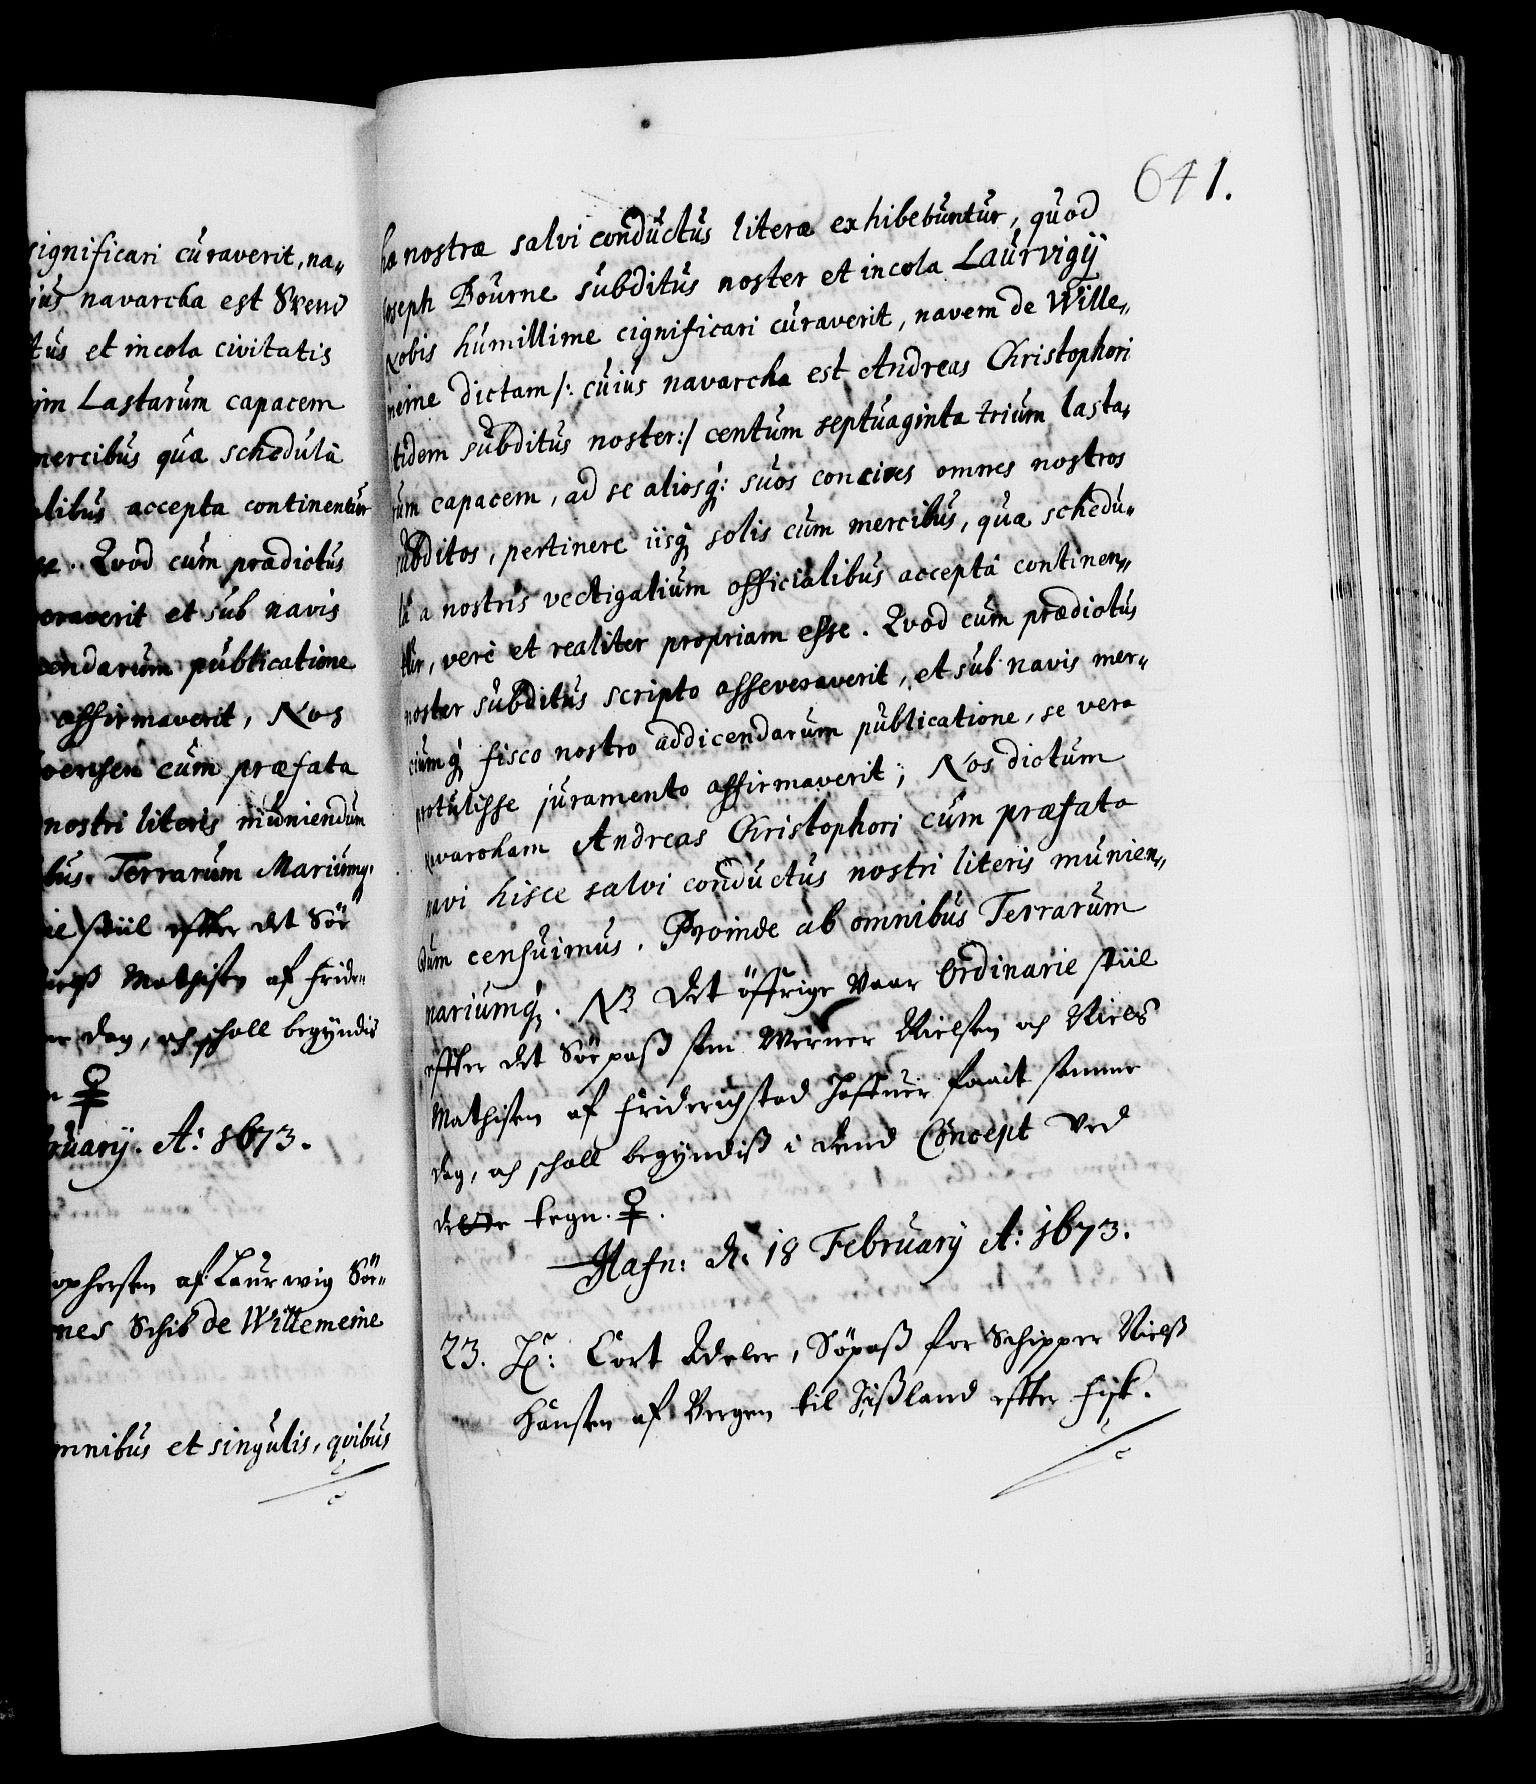 significari curaverit, na„
navarcha est Svend
et incola civitatis
Lastarum capacem
mercibus qua schedulâ
accepta continentur
Qvod cum prædictus
et sub navis
publicatione
affirmaverit, Nos
cum præfata
nostri literis muniendum
Terrarum Mariumq.
stiil effter det Sör
Mathisen af Fride„
dag, och schall begyndis
♀
A: 1673.
af Laurwig Sör„
Schib de Willemeine
omnibus et singulis, qvibus
641.
nostræ salvi conductus literæ exhibebuntur, quod
Joseph Bourne subditus noster et incola Laurvigÿ
Nobis humillime cignificari curaverit, navem de Wille„
meine dictam /: cuius navarcha est Andreas Christophori
itidem subditus noster:/ centum septuaginta trium lasta„
rum capacem, ad se aliosq: suos concives omnes nostros
subditos, pertinere iisq solis cum mercibus, qua schedu„
lâ a nostris vectigalium officialibus acceptâ continen„
tur, verè et realiter propriam esse. Qvod cum prædictus
noster subditus scripto asseveraverit, et sub navis mer„
ciumq fisco nostro addicendarum publicatione, se vera
protulisse juramento affirmaverit; Nos dictum
Navarcham Andreas Christophori cum præfata
navi hisce salvi conductus nostri literis munien„
dum censuimus. Proinde ab omnibus Terrarum
mariumq. NB det öffrige vaar Ordinarie stiil
effter det Söe pass som Werner Nielsen och Niels
Mathisen af Friderichstad haffuer faait samme
dag, och schall begyndiss i dend Concept ved
dette tegn. ♀.
Hafn: d. 18 February A: 1673.
23. Hr: Cort Adeler, Söpass for Schipper Nielss
Hansen af Bergen til Jissland effter Fisk.